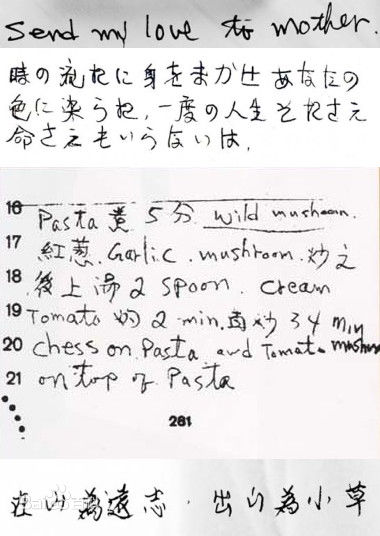 Send my love to mother.
時の流れに身をまかせ あなたの
色に染られ,一度の人生それさえ
命さえもいらないは,
16 Pasta 煮 5分 wild mushoom.
17 紅蔥. Garlic. mushroom. 炒之
18 後上湯 2 spoon. cream
19 Tomato 灼 2 min. 再炒 3 4 min
20 chess on Pasta and Tomato
21 on top of Pasta
281
在山為遠志.出山為小草